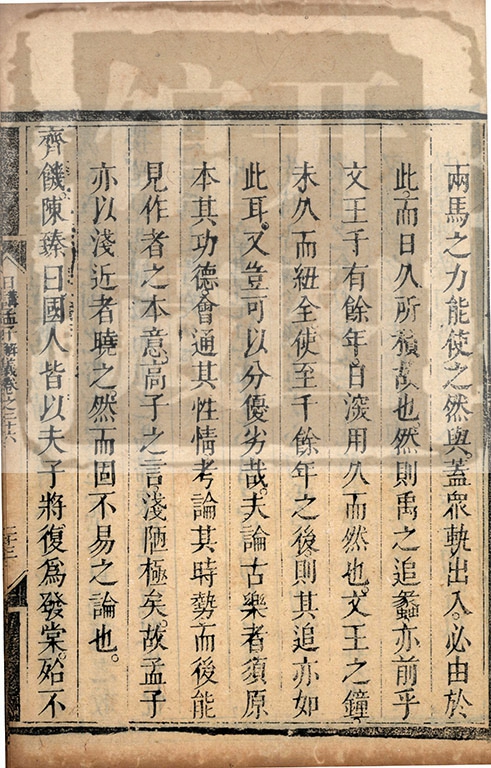 兩馬之力能使之然與。蓋衆軌出入。必由於
此。而日久所積故也。然則禹之追蠡。亦前乎
文王千有餘年。自深用久而然也。文王之鐘。
未久而紐全。使至千餘年之後。則其追亦如
此耳。又豈可以分優劣哉。夫論古樂者。須原
本其功德。會通其性情。考論其時勢。而後能
見作者之本意。高子之言。淺陋極矣。故孟子
亦以淺近者曉之。然而固不易之論也。
齊饑。陳臻曰。國人皆以夫子將復爲發棠。殆不
日講孟子解義卷之二十六
二十三